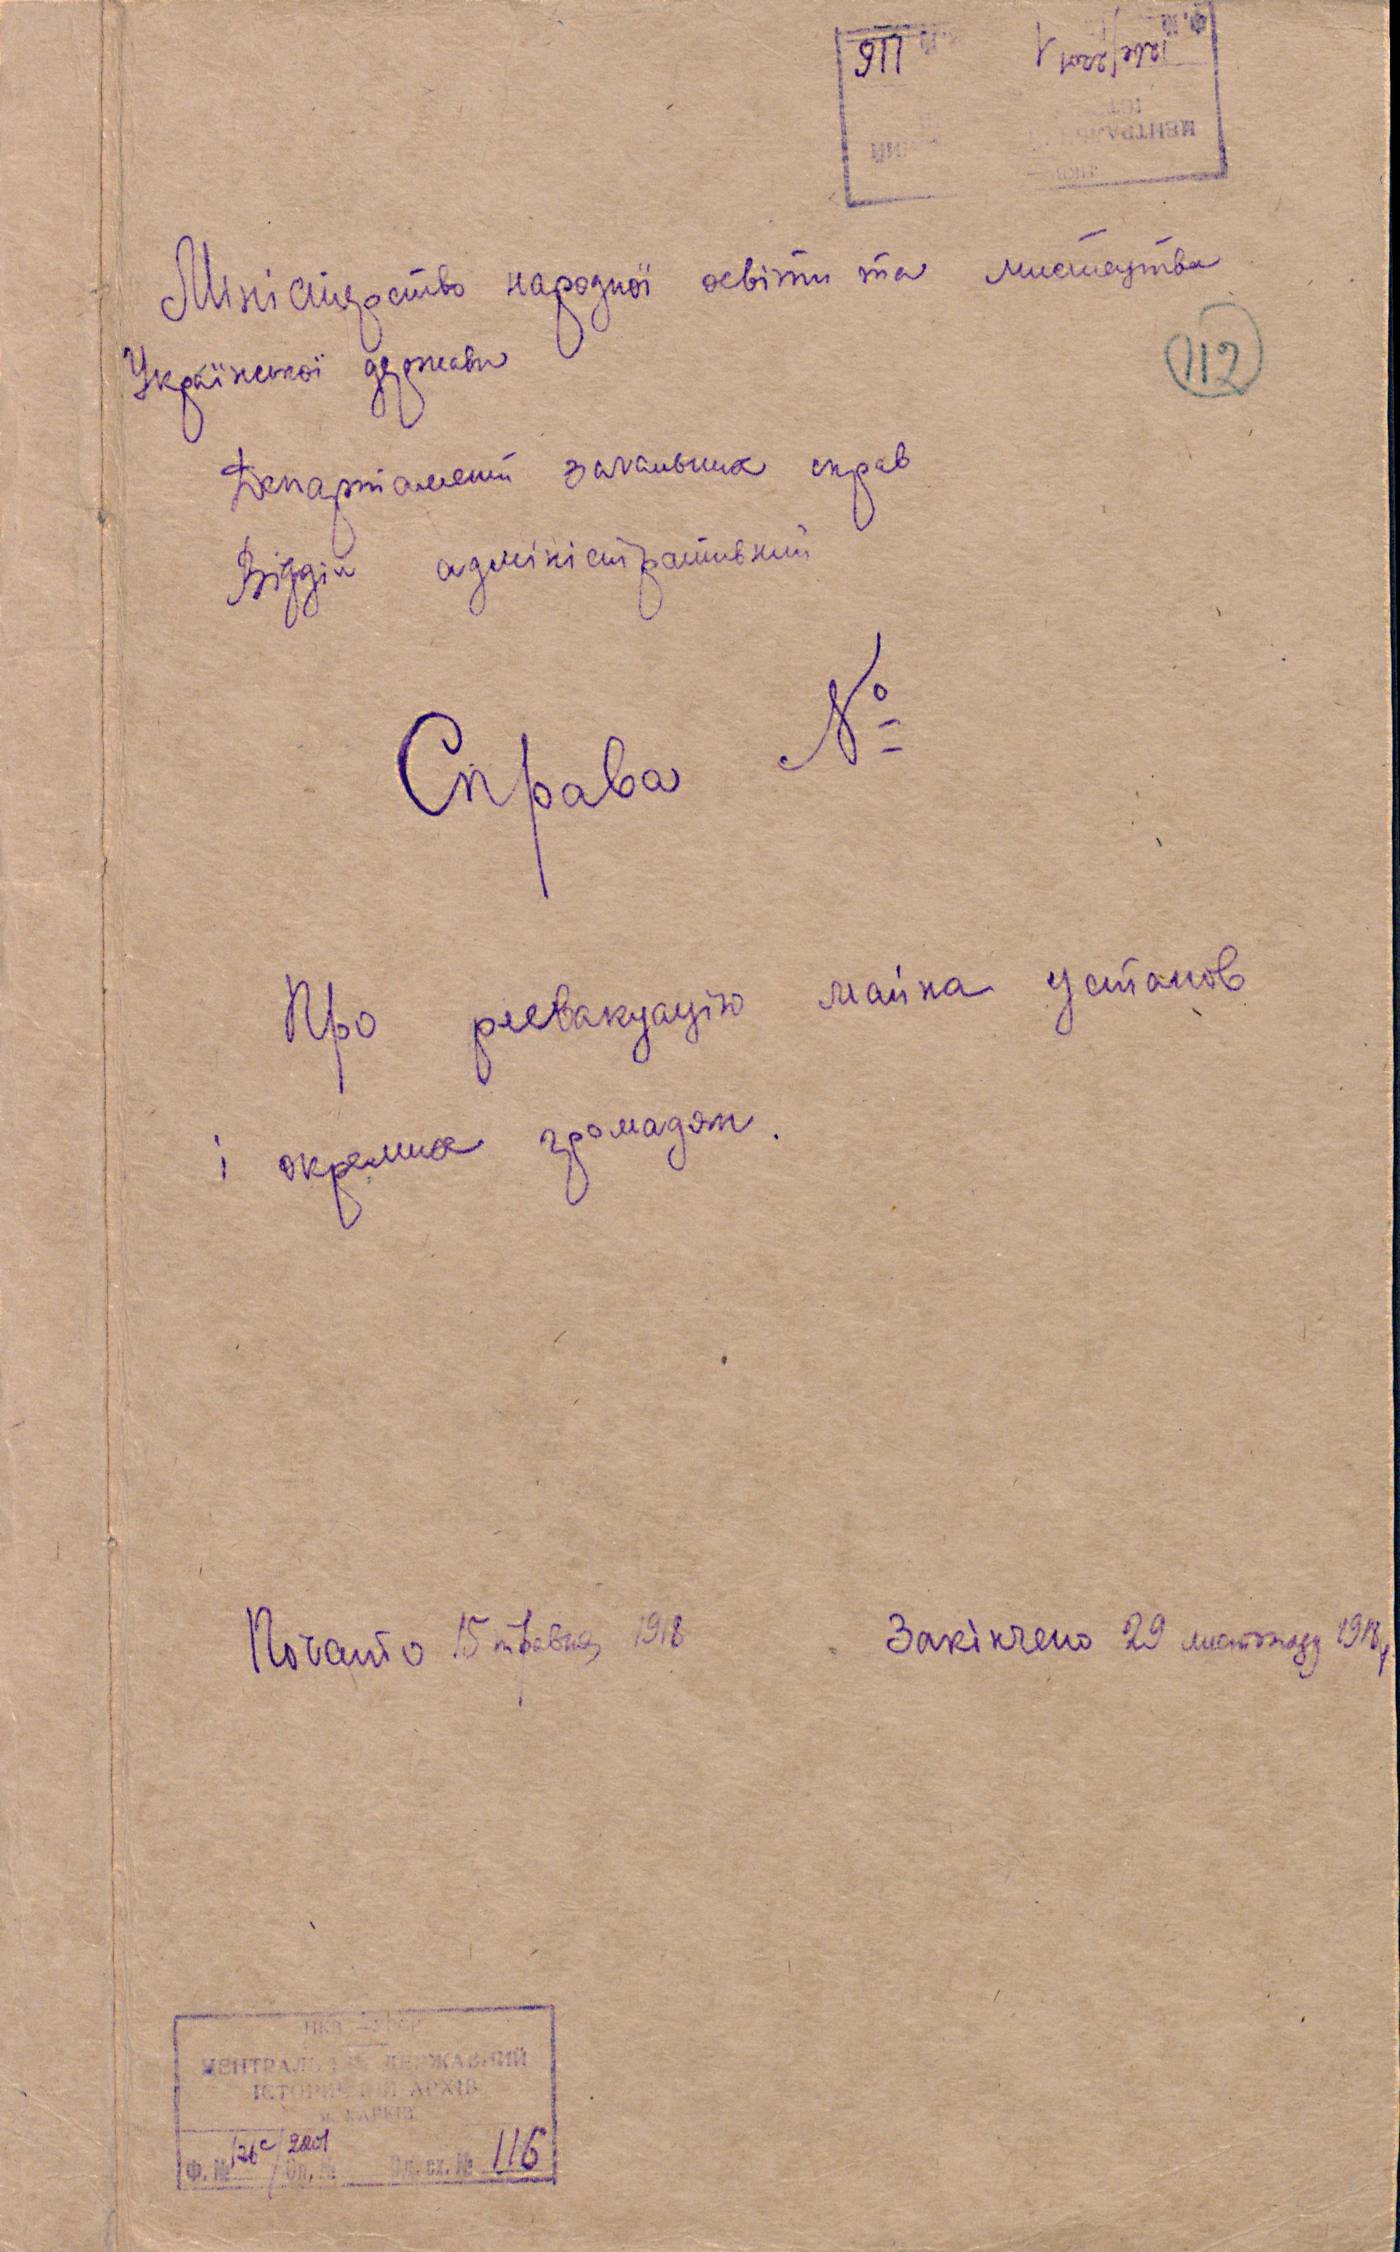 116
126с/2201
1
Міністерство народної освіти та мистецтва
Української держави
112
Департамент загальних справ
Відділ адміністративний
Справа №
Про реевакуацію майна установ
і окремих громадян.
Почато 15 травня 1918
Закінчено 29 листопаду 1918 р.
НКВС УРСР
ЦЕНТРАЛЬНИЙ ДЕРЖАВНИЙ
ІСТОРИЧНИЙ АРХІВ
м. ХАРКІВ
Ф. № 126с/2201 Оп. № Од. сх. № 116